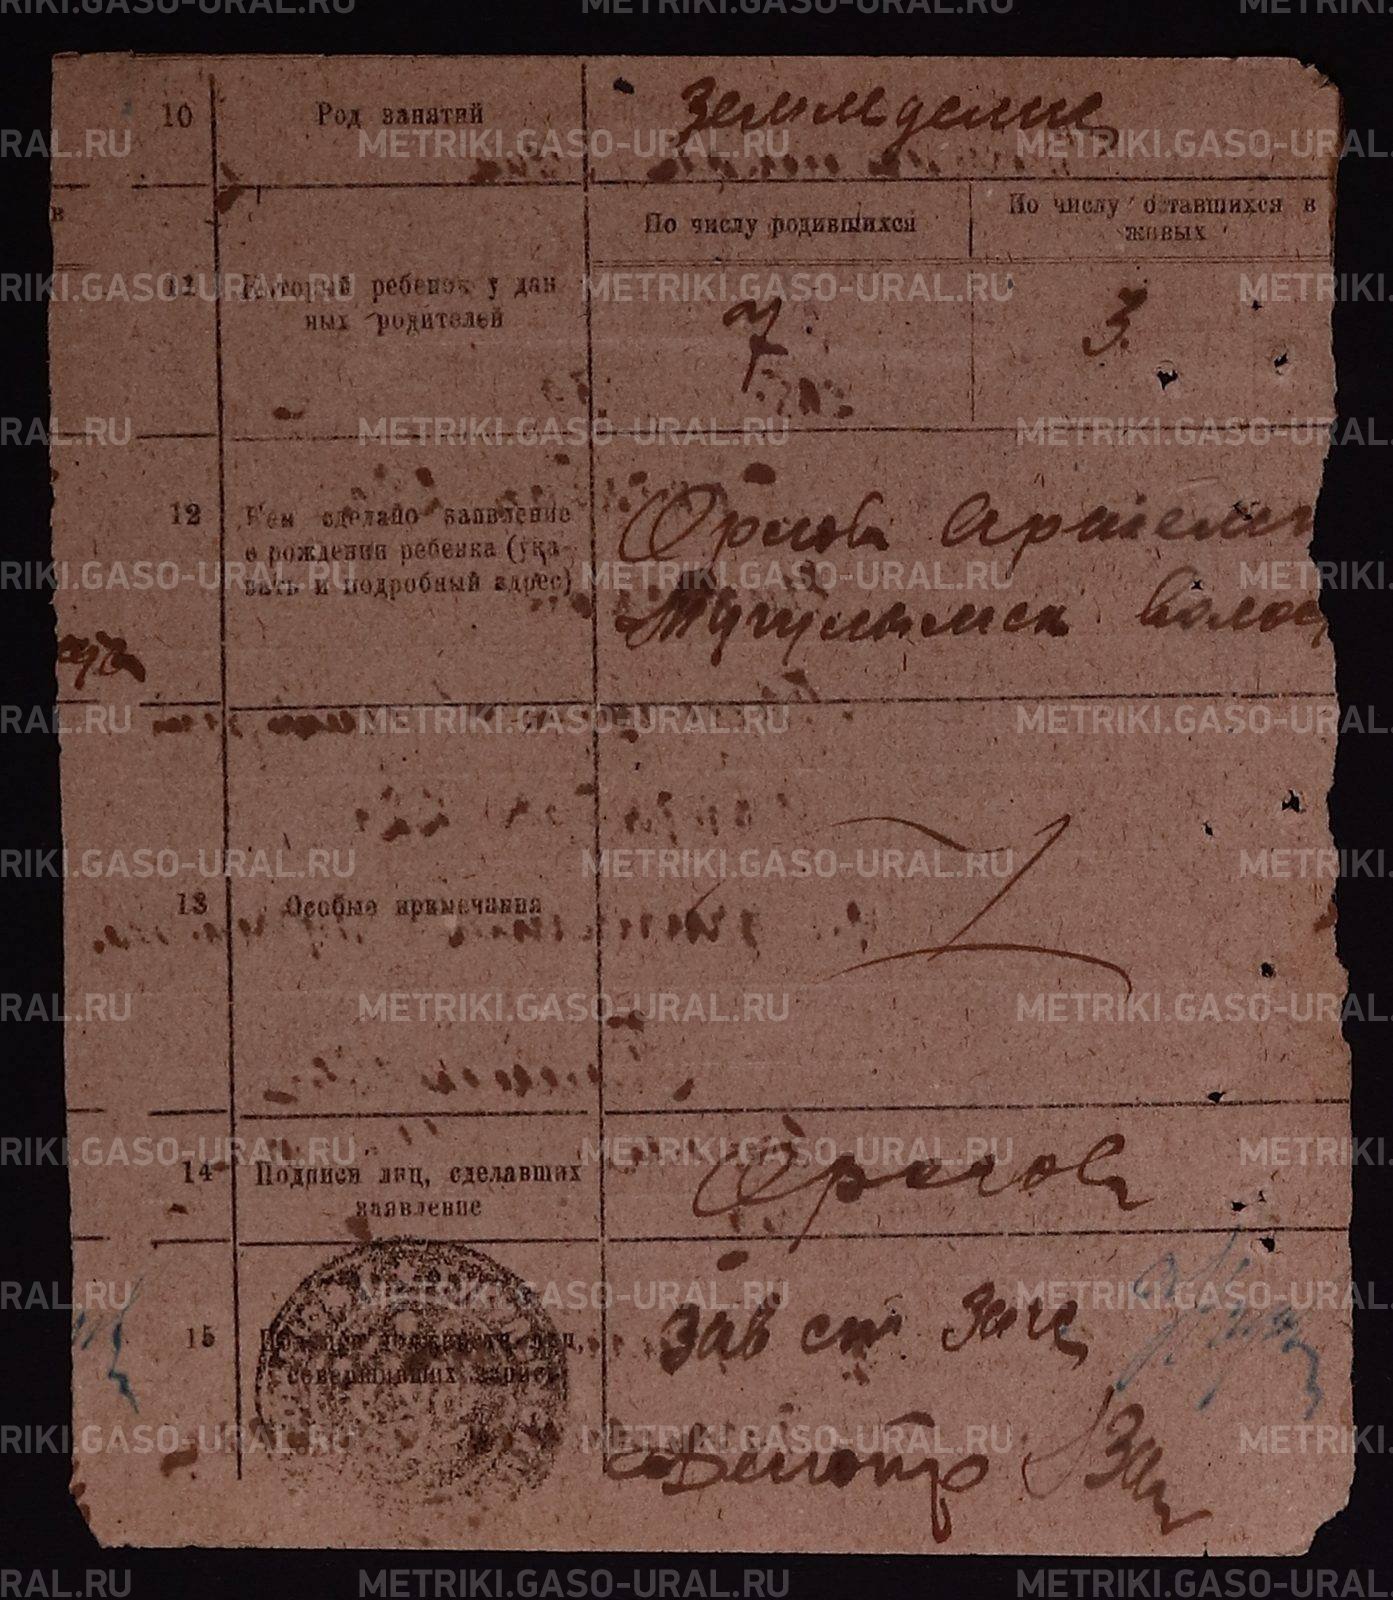 10 Род занятий земледелие
в
По числу родившихся По числу оставшихся в
живых
11 Который ребенок у дан
ных родителей
7. 3.
12 Кем сделано заявление
о рождении ребенка (ука-
зать и подробный адрес)
Орлов
Тугулымск волос
13 Особые примечания
14 Подписи лиц, сделавших
заявление
Орлов
15
совершивших запись
зав ст загс
METRIKI.GASO-URAL.RU